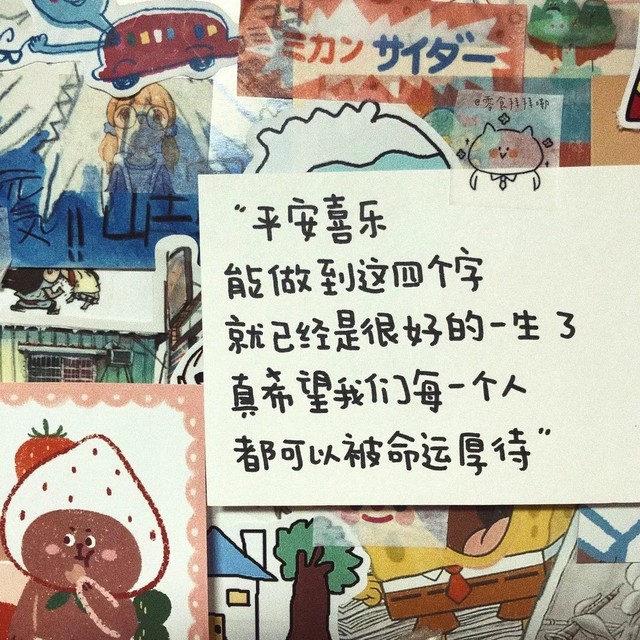 ミカン サイダー
@零食拜拜嘞
“平安喜乐
能做到这四个字
就已经是很好的一生了
真希望我们每一个人
都可以被命运厚待”